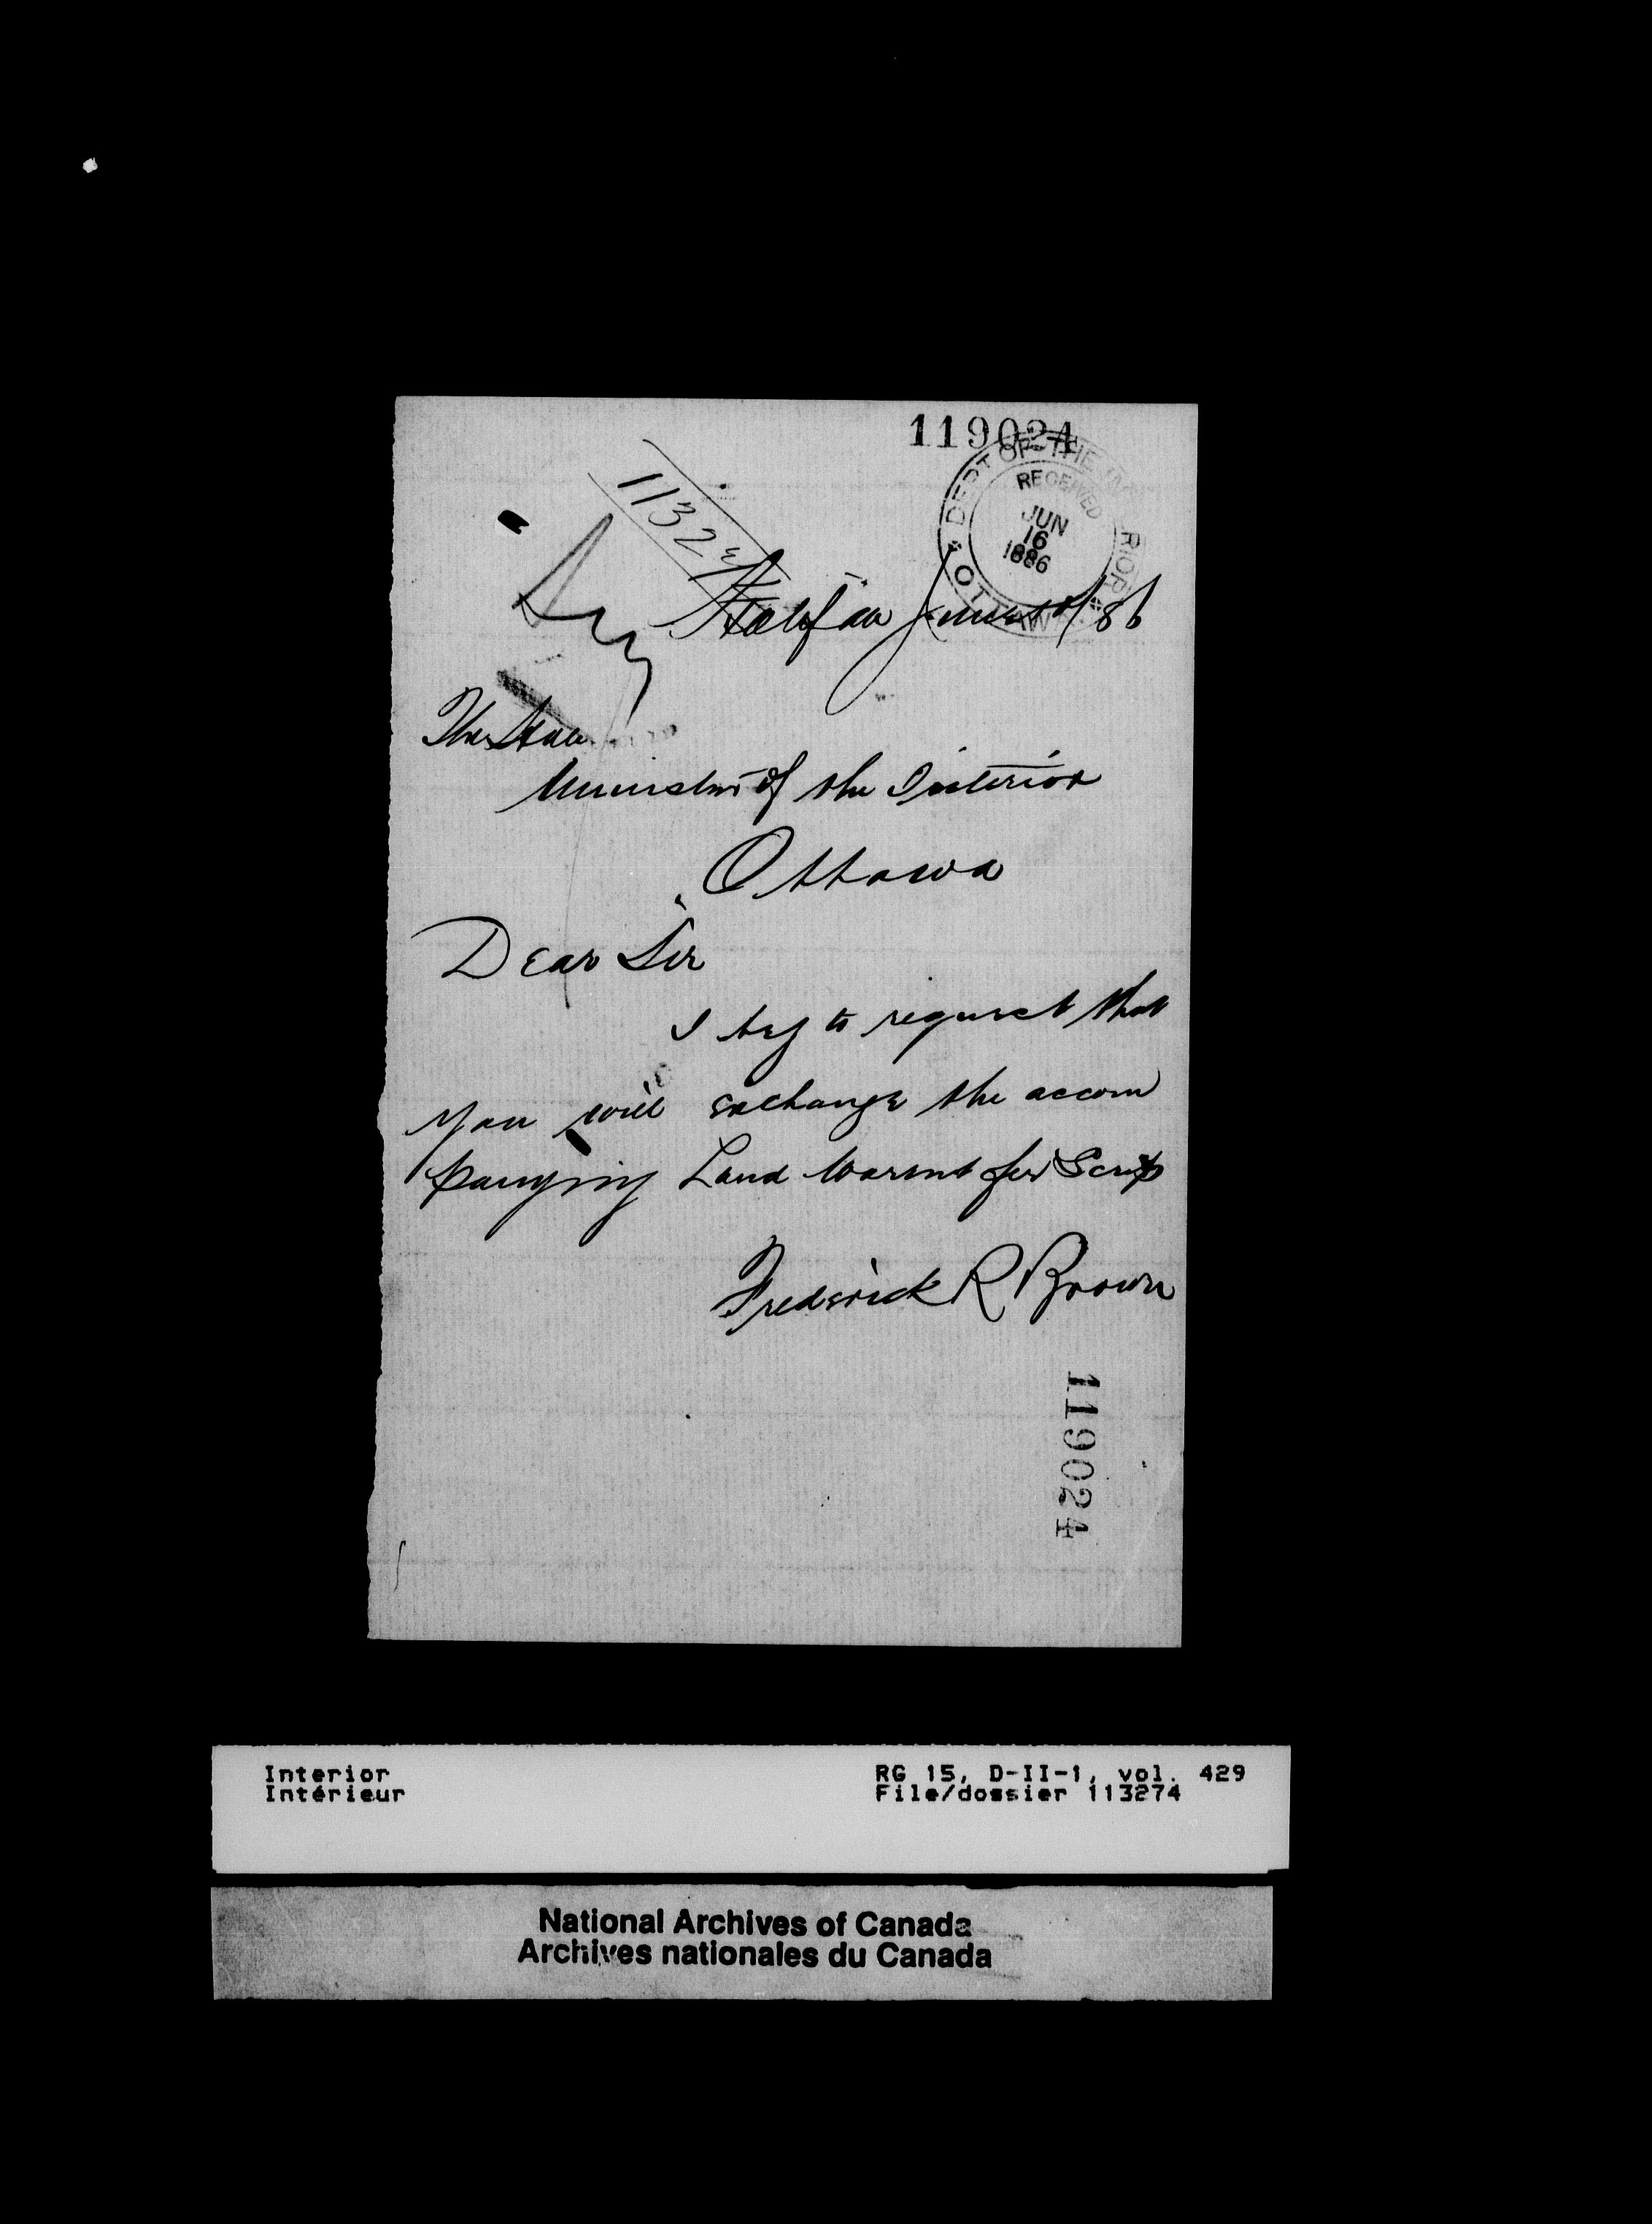 119024
DEPT OF THE INTERIOR
OTTAWA
RECEIVED
JUN
16
1886
11327
Halifax June /86
The Hon
Minister of the Interior
Ottawa
Dear Sir
I beg to request that
you will exchange the accom
panying Land Warent for Scrip
Frederick R Brown
119024
Interior
Intérieur
RG 15, D-II-1, vol. 429
File/dossier 113274
National Archives of Canada
Archives nationales du Canada